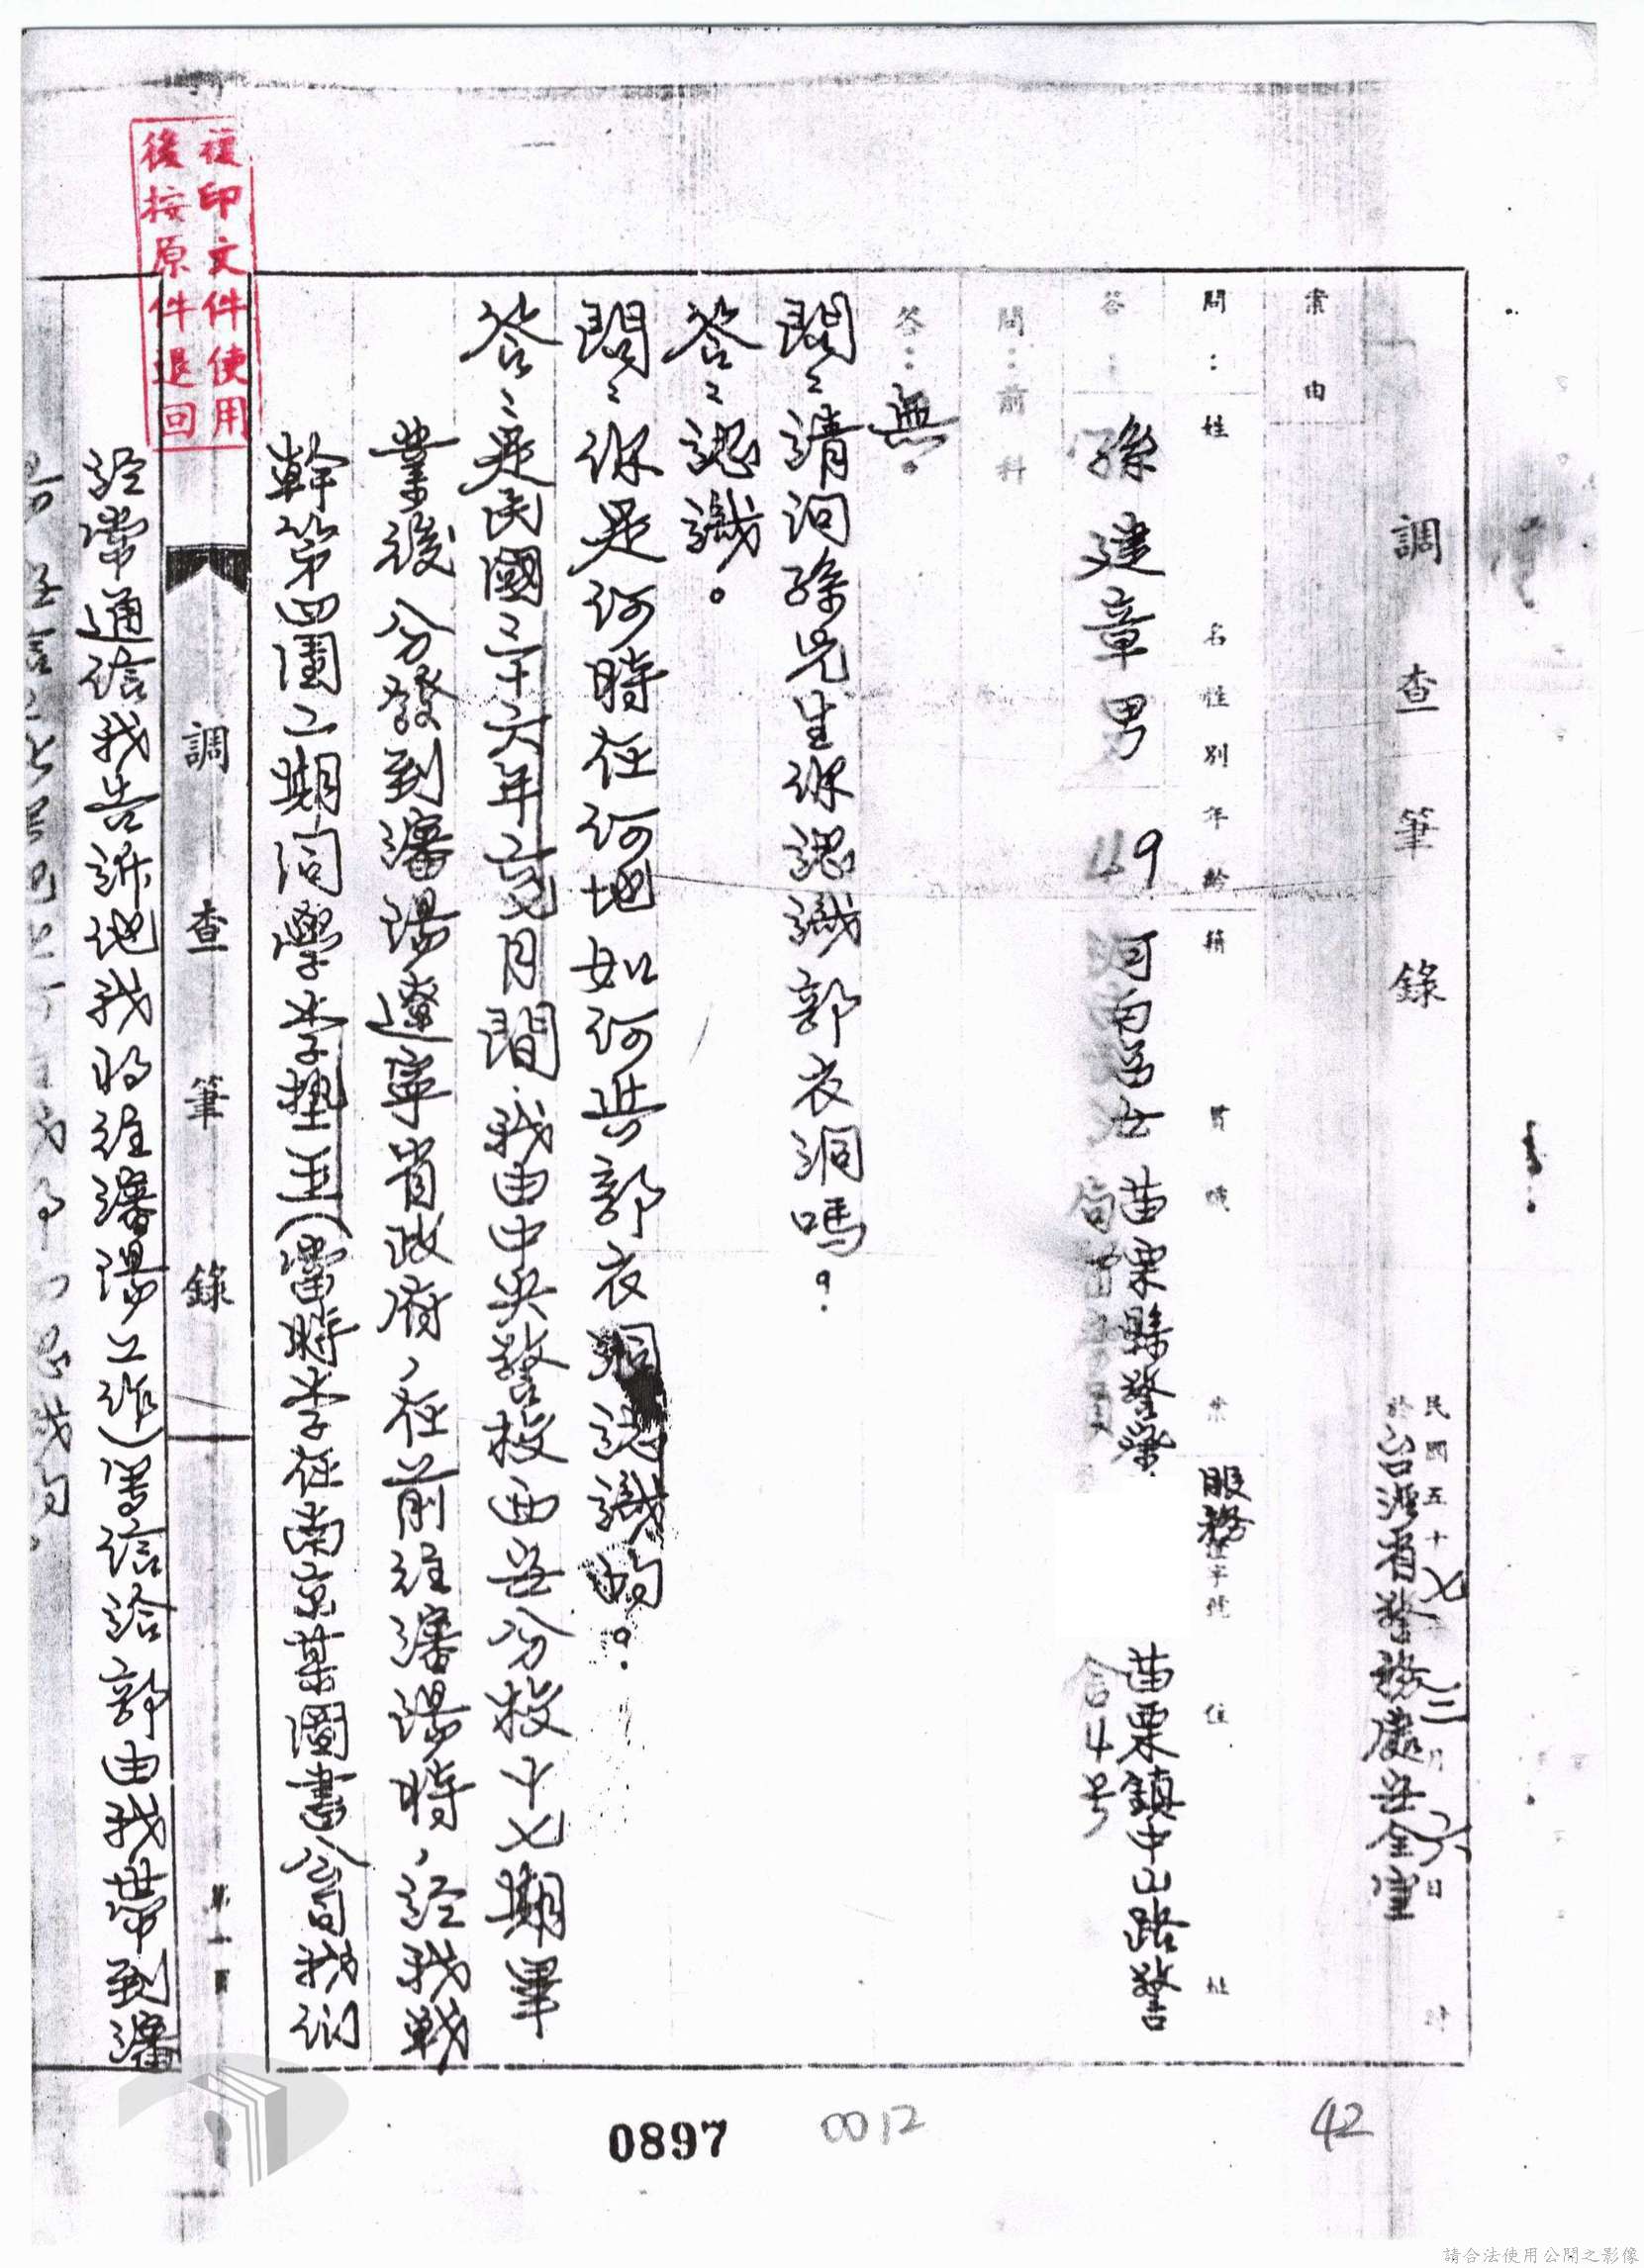 調查筆錄
民國五十七年三月六日 時
於台灣省警務處安全室
案由
問：姓名性別年齡籍貫職業服務住址
孫建章 男 49 河南 苗栗縣警察局 苗栗鎮中山路警
答： 舍4号
問：前科
答：無。
問：請問孫先生你認識郭衣洞嗎？
答：認識。
問：你是何時在何地如何與郭衣洞認識的。
答：是民國二十六年 月間．我由中央警校西安分校十七期畢
業後分發到瀋陽遼寧省政府，在前往瀋陽時，經我戰
幹第四團二期同學 當時李在南京某圖書公司我們
調查筆錄
第一頁
經常通信我告訴他我將往瀋陽工作）寫信給郭由我帶到瀋
複印文件使用
後按原件退回
0897
0012
42
請合法使用公開之影像